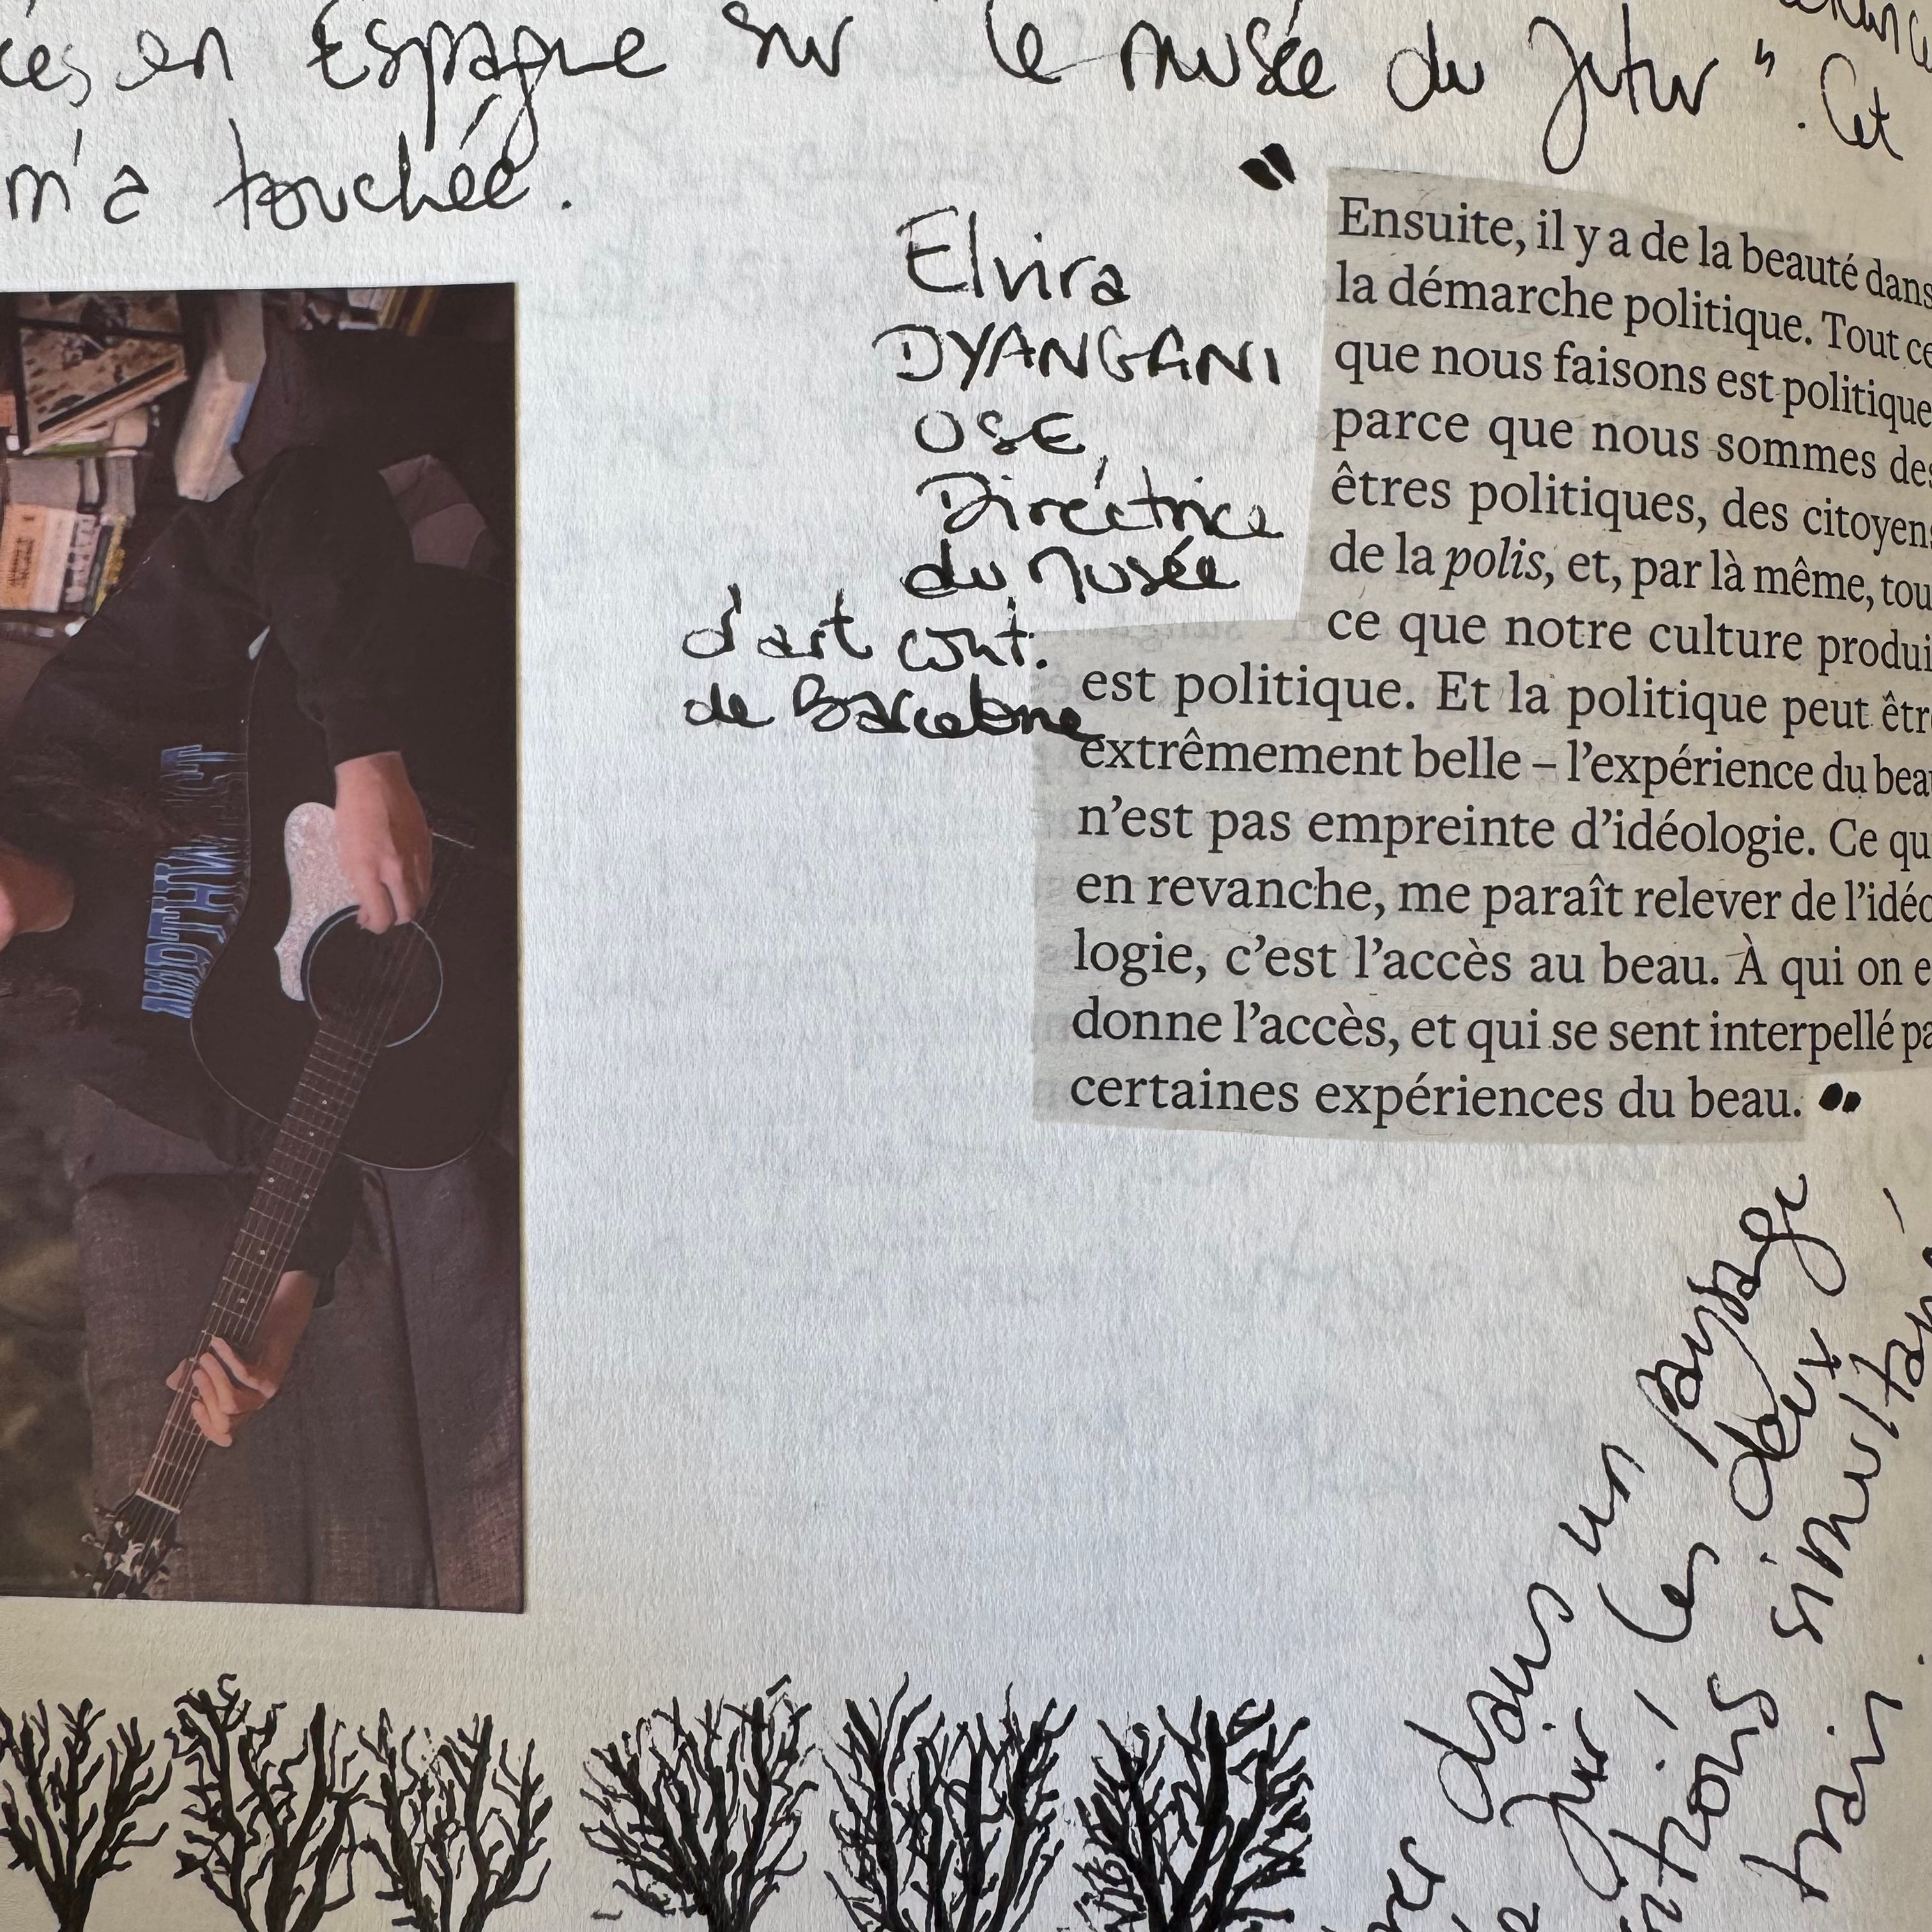 en Espagne sur le musée du futur". Cet
m'a touchée.
"
Elvira
DYANGANI
OSE,
Directrice
du Musée
d'art cont.
de Barcelone
Ensuite, il y a de la beauté dans
la démarche politique. Tout ce
que nous faisons est politique
parce que nous sommes des
êtres politiques, des citoyens
de la polis, et, par là même, tou
ce que notre culture produi
est politique. Et la politique peut êtr
extrêmement belle – l'expérience du beau
n'est pas empreinte d'idéologie. Ce qu
en revanche, me paraît relever de l'idéo
logie, c'est l'accès au beau. À qui on e
donne l'accès, et qui se sent interpellé pa
certaines expériences du beau. "
dans un paysage
les deux
simultan
train